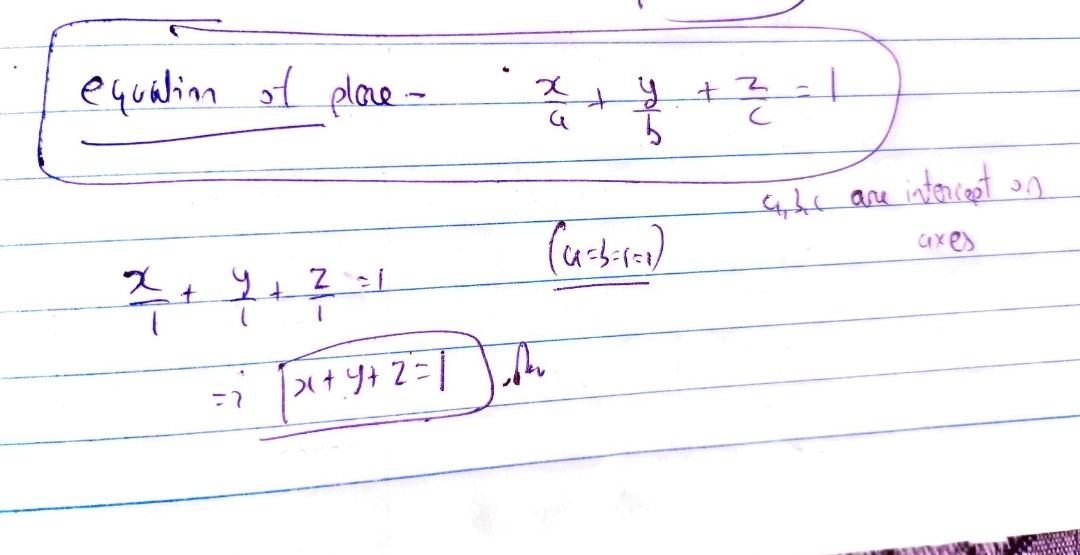 equation of plane - x/a + y/b + z/c = 1
a, b, c are intercept on
axes
(a=b=c=1)
x/1 + y/1 + z/1 = 1
=> x+y+z=1 . Ans